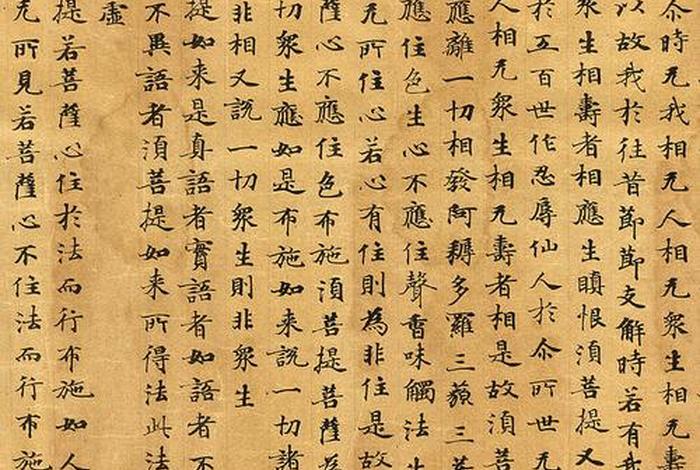 尒時无我相无人相无衆生相无壽
以故我於往昔節節支解時若有我
衆生相壽者相應生瞋恨湏菩提又
於五百世作忍辱仙人於尒所世无
人相无衆生相无壽者相是故湏菩
應離一切相發阿耨多羅三藐三菩
應住色生心不應住聲香味觸法生
无所住心若心有住則為非住是故
薩心不應住色布施湏菩提菩薩為
切衆生應如是布施如来說一切諸
非相又說一切衆生則非衆生
提如来是真語者實語者如語者不
不異語者湏菩提如来所得法此法
虛
提若菩薩心住於法而行布施如人
无所見若菩薩心不住法而行布施